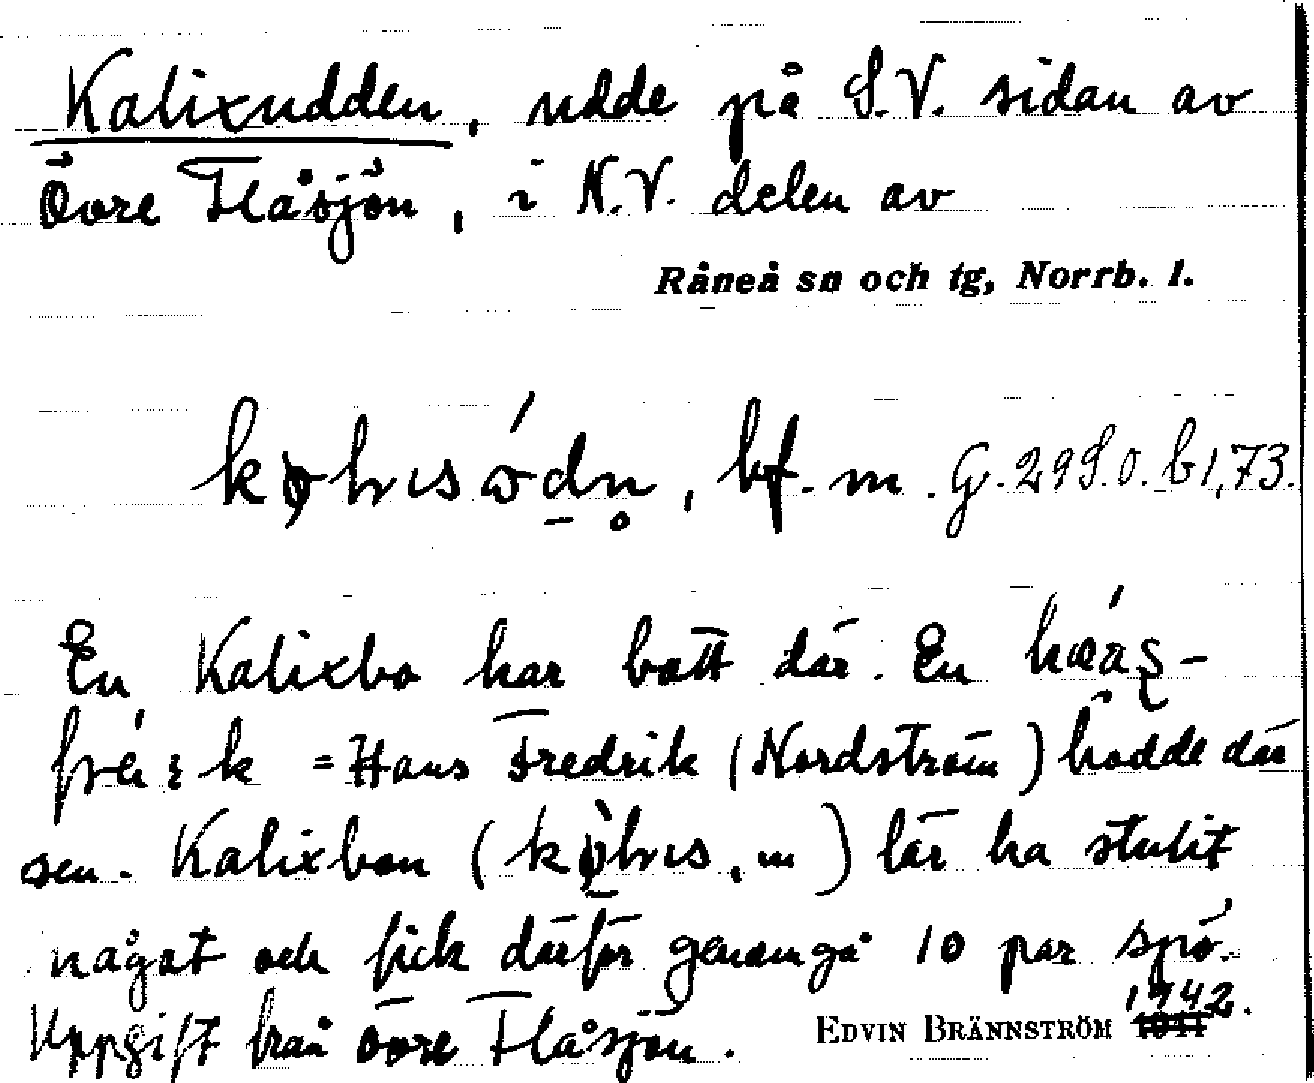 Kalixudden, udde på S.V. sidan av
Övre Flåsjön, i N.V. delen av
Råneå sn och tg, Norrb. l.
bf. m. G. 29 S.O. b 1, 73.
En Kalixbo har bott där. En
= Hans Fredrik (Nordström) bodde där
sen. Kalixbon ( ) lär ha stulit
något och fick därför genomgå 10 par spö.
Uppgift från Övre Flåsjön.
EDVIN BRÄNNSTRÖM 1942.